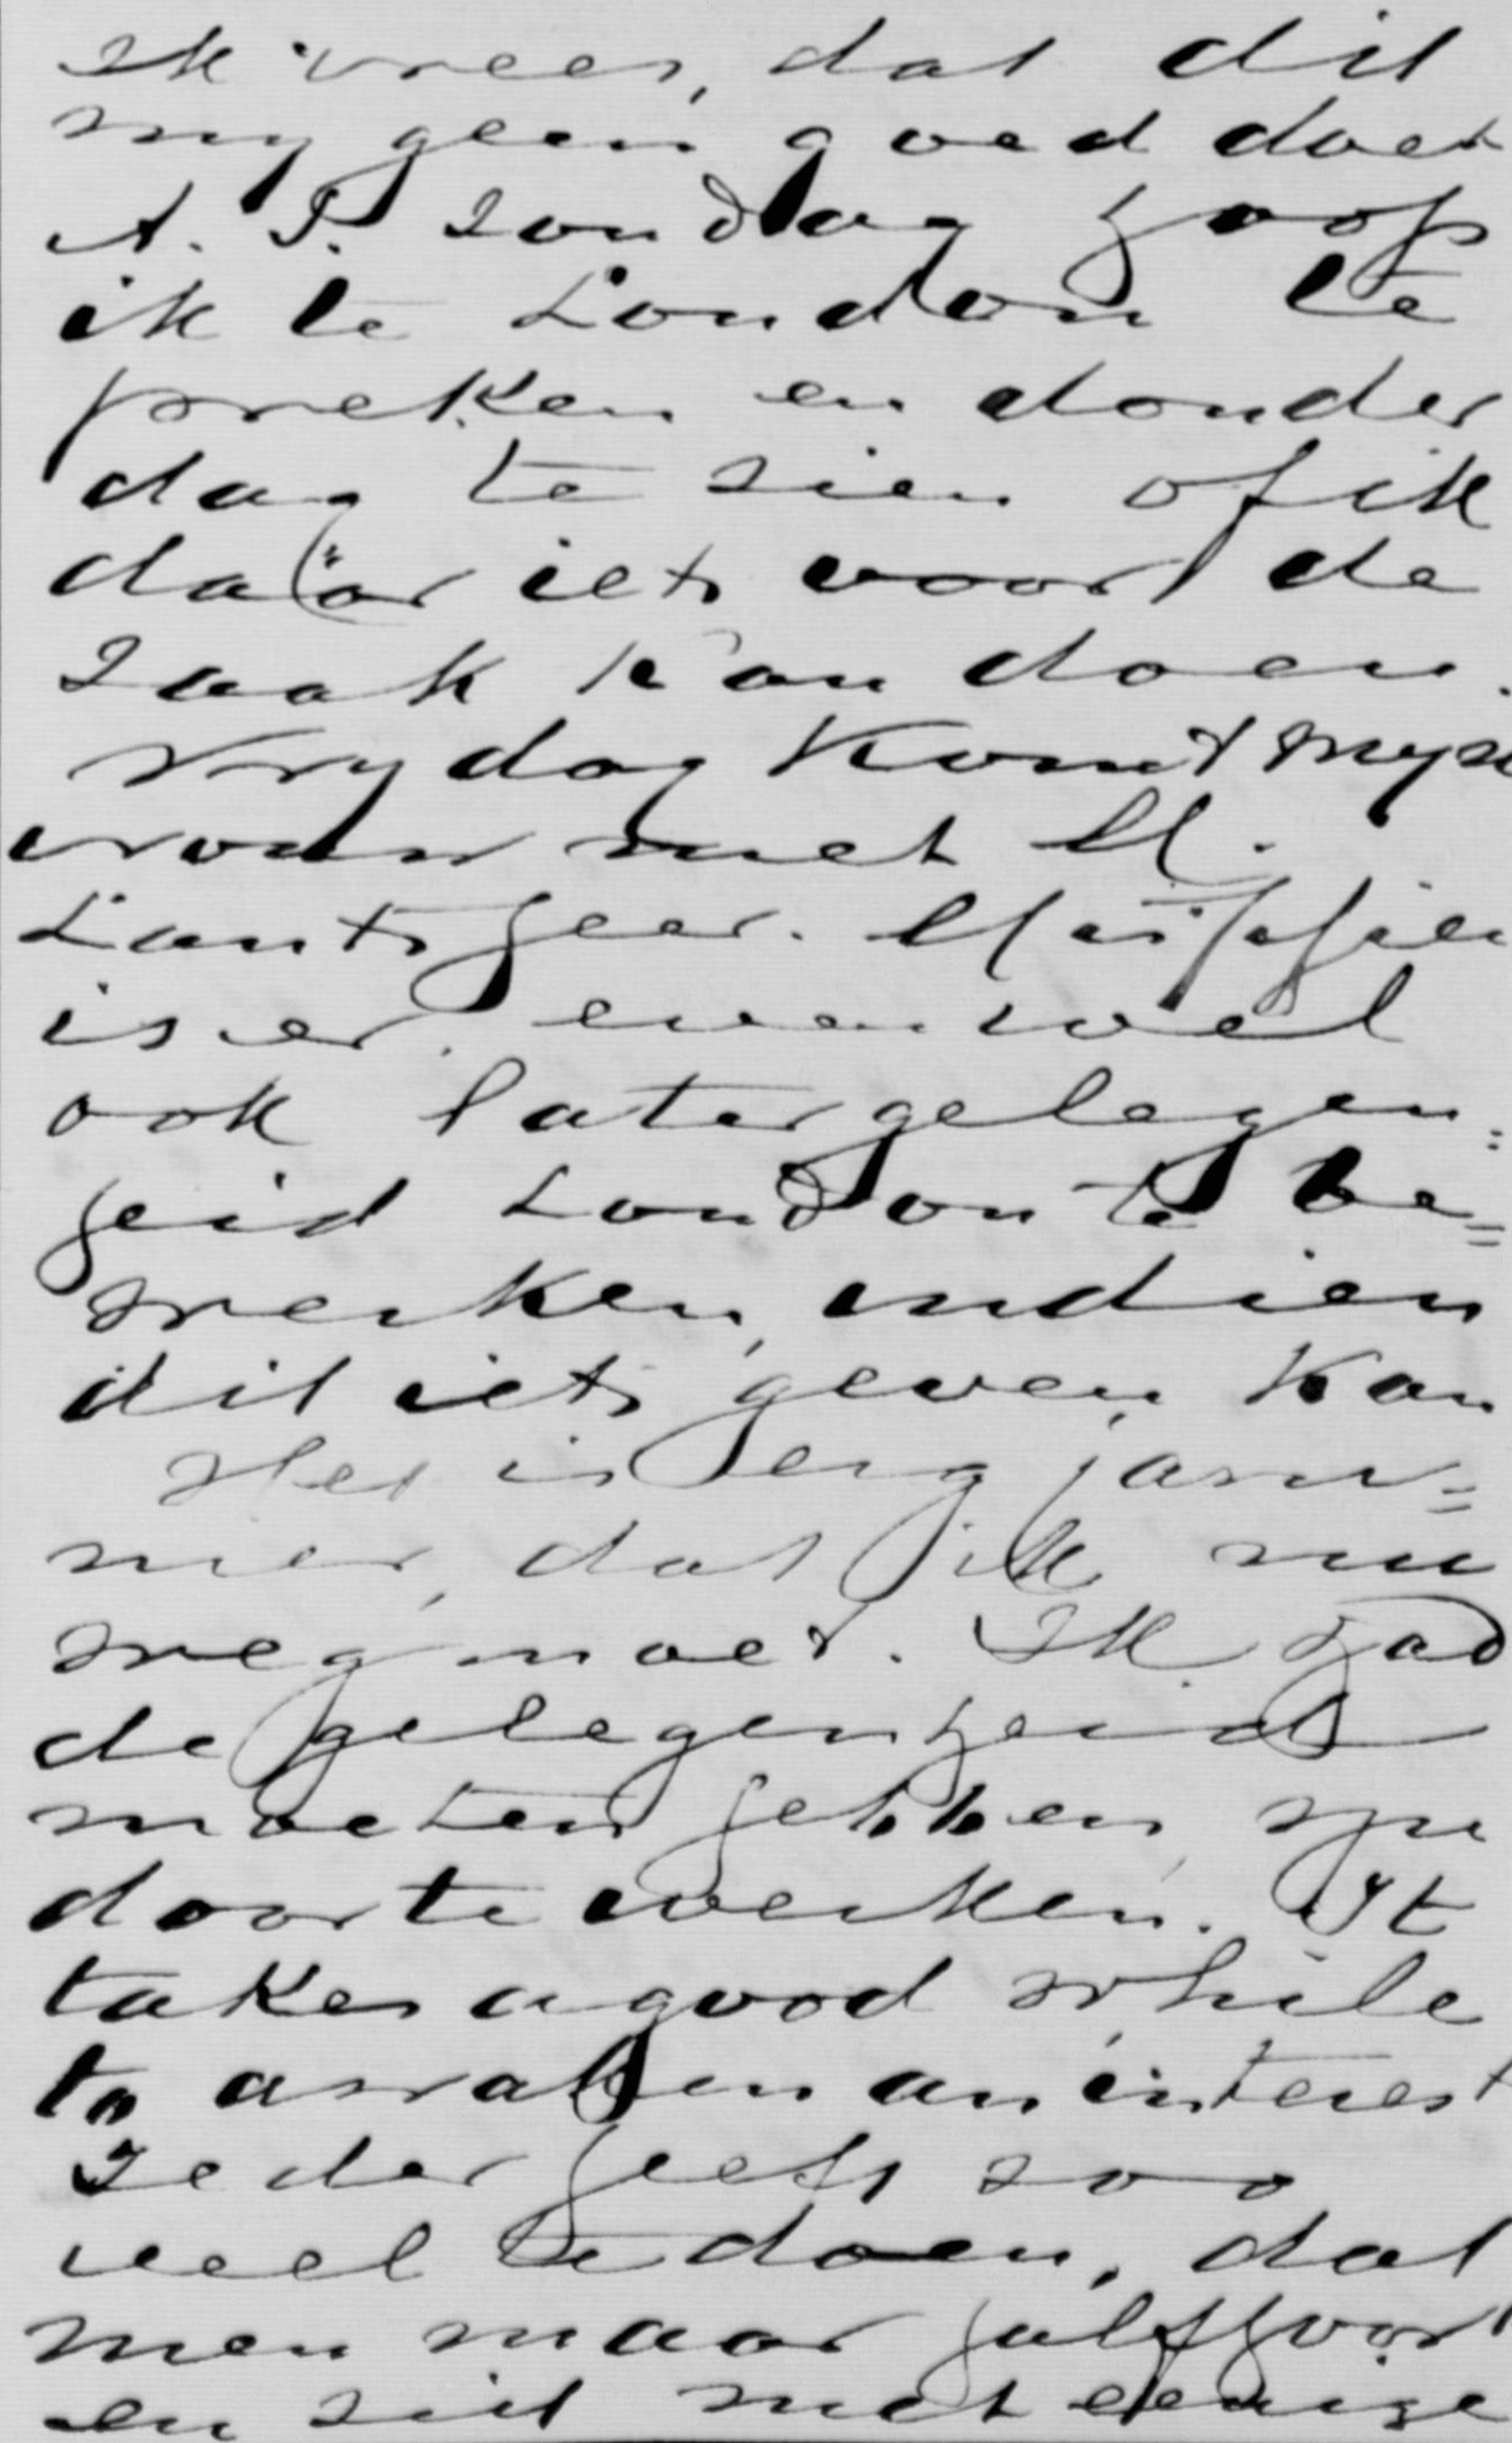 Ik vrees, dat dit
my geen goed doet
A. S. Zondag hoop
ik te London te
preken en donder
dag te zien of ik
daar iets voor de
zaak kan doen.
Vrydag komt myn
vrouw met M.
Lants heer. Misschien
is er evenwel
ook later gelegen=
heid London te be=
werken, indien
dit iets geven kan
Het is erg jam=
mer, dat ik nu
weg moet. Ik had
de gelegenheid
moeten hebben, nu
door te werken. It
takes a good while
to awaken an interest
Ieder heeft zoo
veel te doen, dat
men maar half hoort
en ziet met eenige